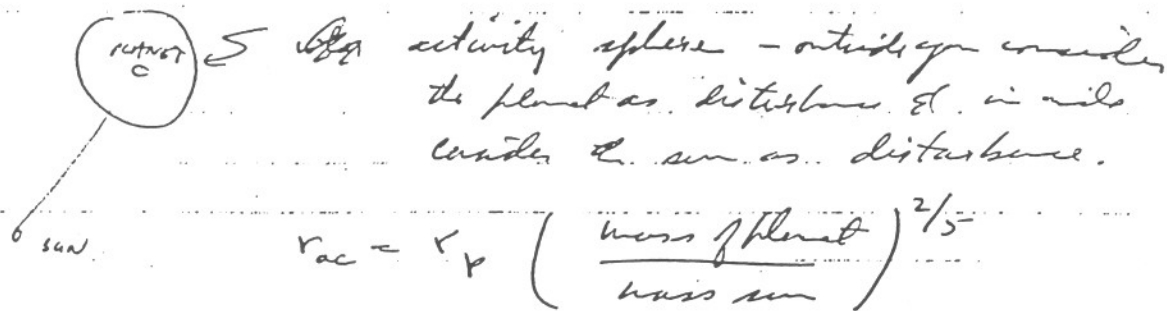 PLANET
activity sphere - outside you consider
the planet as disturbance & inside
consider the sun as disturbance.
SUN
r_ac = r_p ( mass of planet / mass sun )^2/5